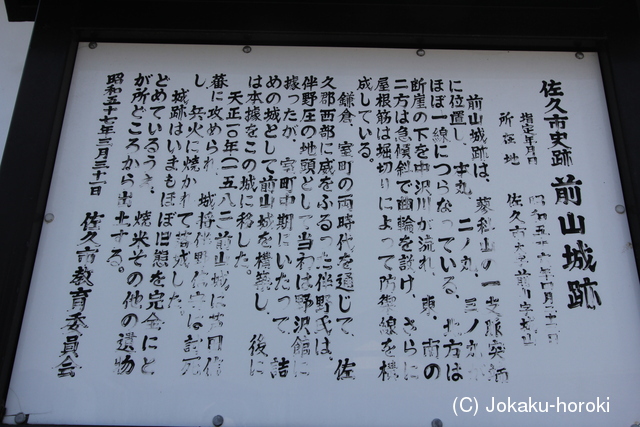 佐久市史跡 前山城跡
指定年月日 昭和五十六年四月二十一日
所在地 佐久市大字前山字城山
前山城跡は、蓼科山の一支脈尖端
に位置し、本丸、二ノ丸、三ノ丸が
ほぼ一線につらなっている。北方は
断崖の下を中沢川が流れ、東、南の
二方は急傾斜で曲輪を設け、さらに
屋根筋は堀切りによって防禦線を構
成している。
鎌倉、室町の両時代を通じて、佐
久郡西部に威をふるった伴野氏は、
伴野庄の地頭として当初は野沢館に
據ったが、室町中期にいたって、詰
めの城として前山城を構築し、後に
は本據をこの城に移した。
天正一〇年(一五八二)前山城は芦田信
蕃に攻められ、城将伴野信守は討死
し、兵火に焼かれて落城した。
城跡はいまもほぼ旧態を完全にと
どめているうえ、焼米その他の遺物
が所どころから出土する。
昭和五十七年三月三十一日
佐久市教育委員会
(C) Jokaku-horoki